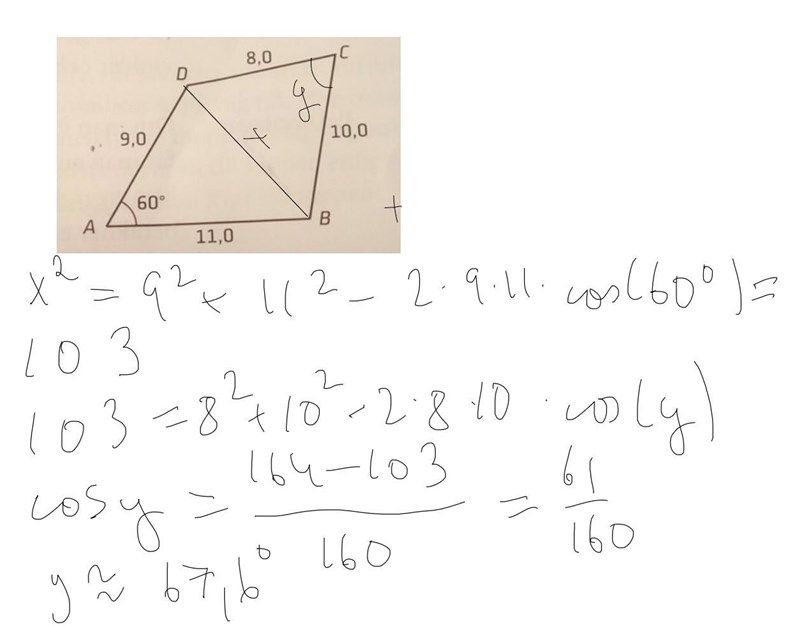 C
8,0
D
y
9,0
x
10,0
60°
A
B
+
11,0
x² = 9² + 11² - 2·9·11· cos(60°) =
103
103 = 8² + 10² - 2·8·10 · cos(y)
cos y = (164-103)/160 = 61/160
y ≈ 67,6°